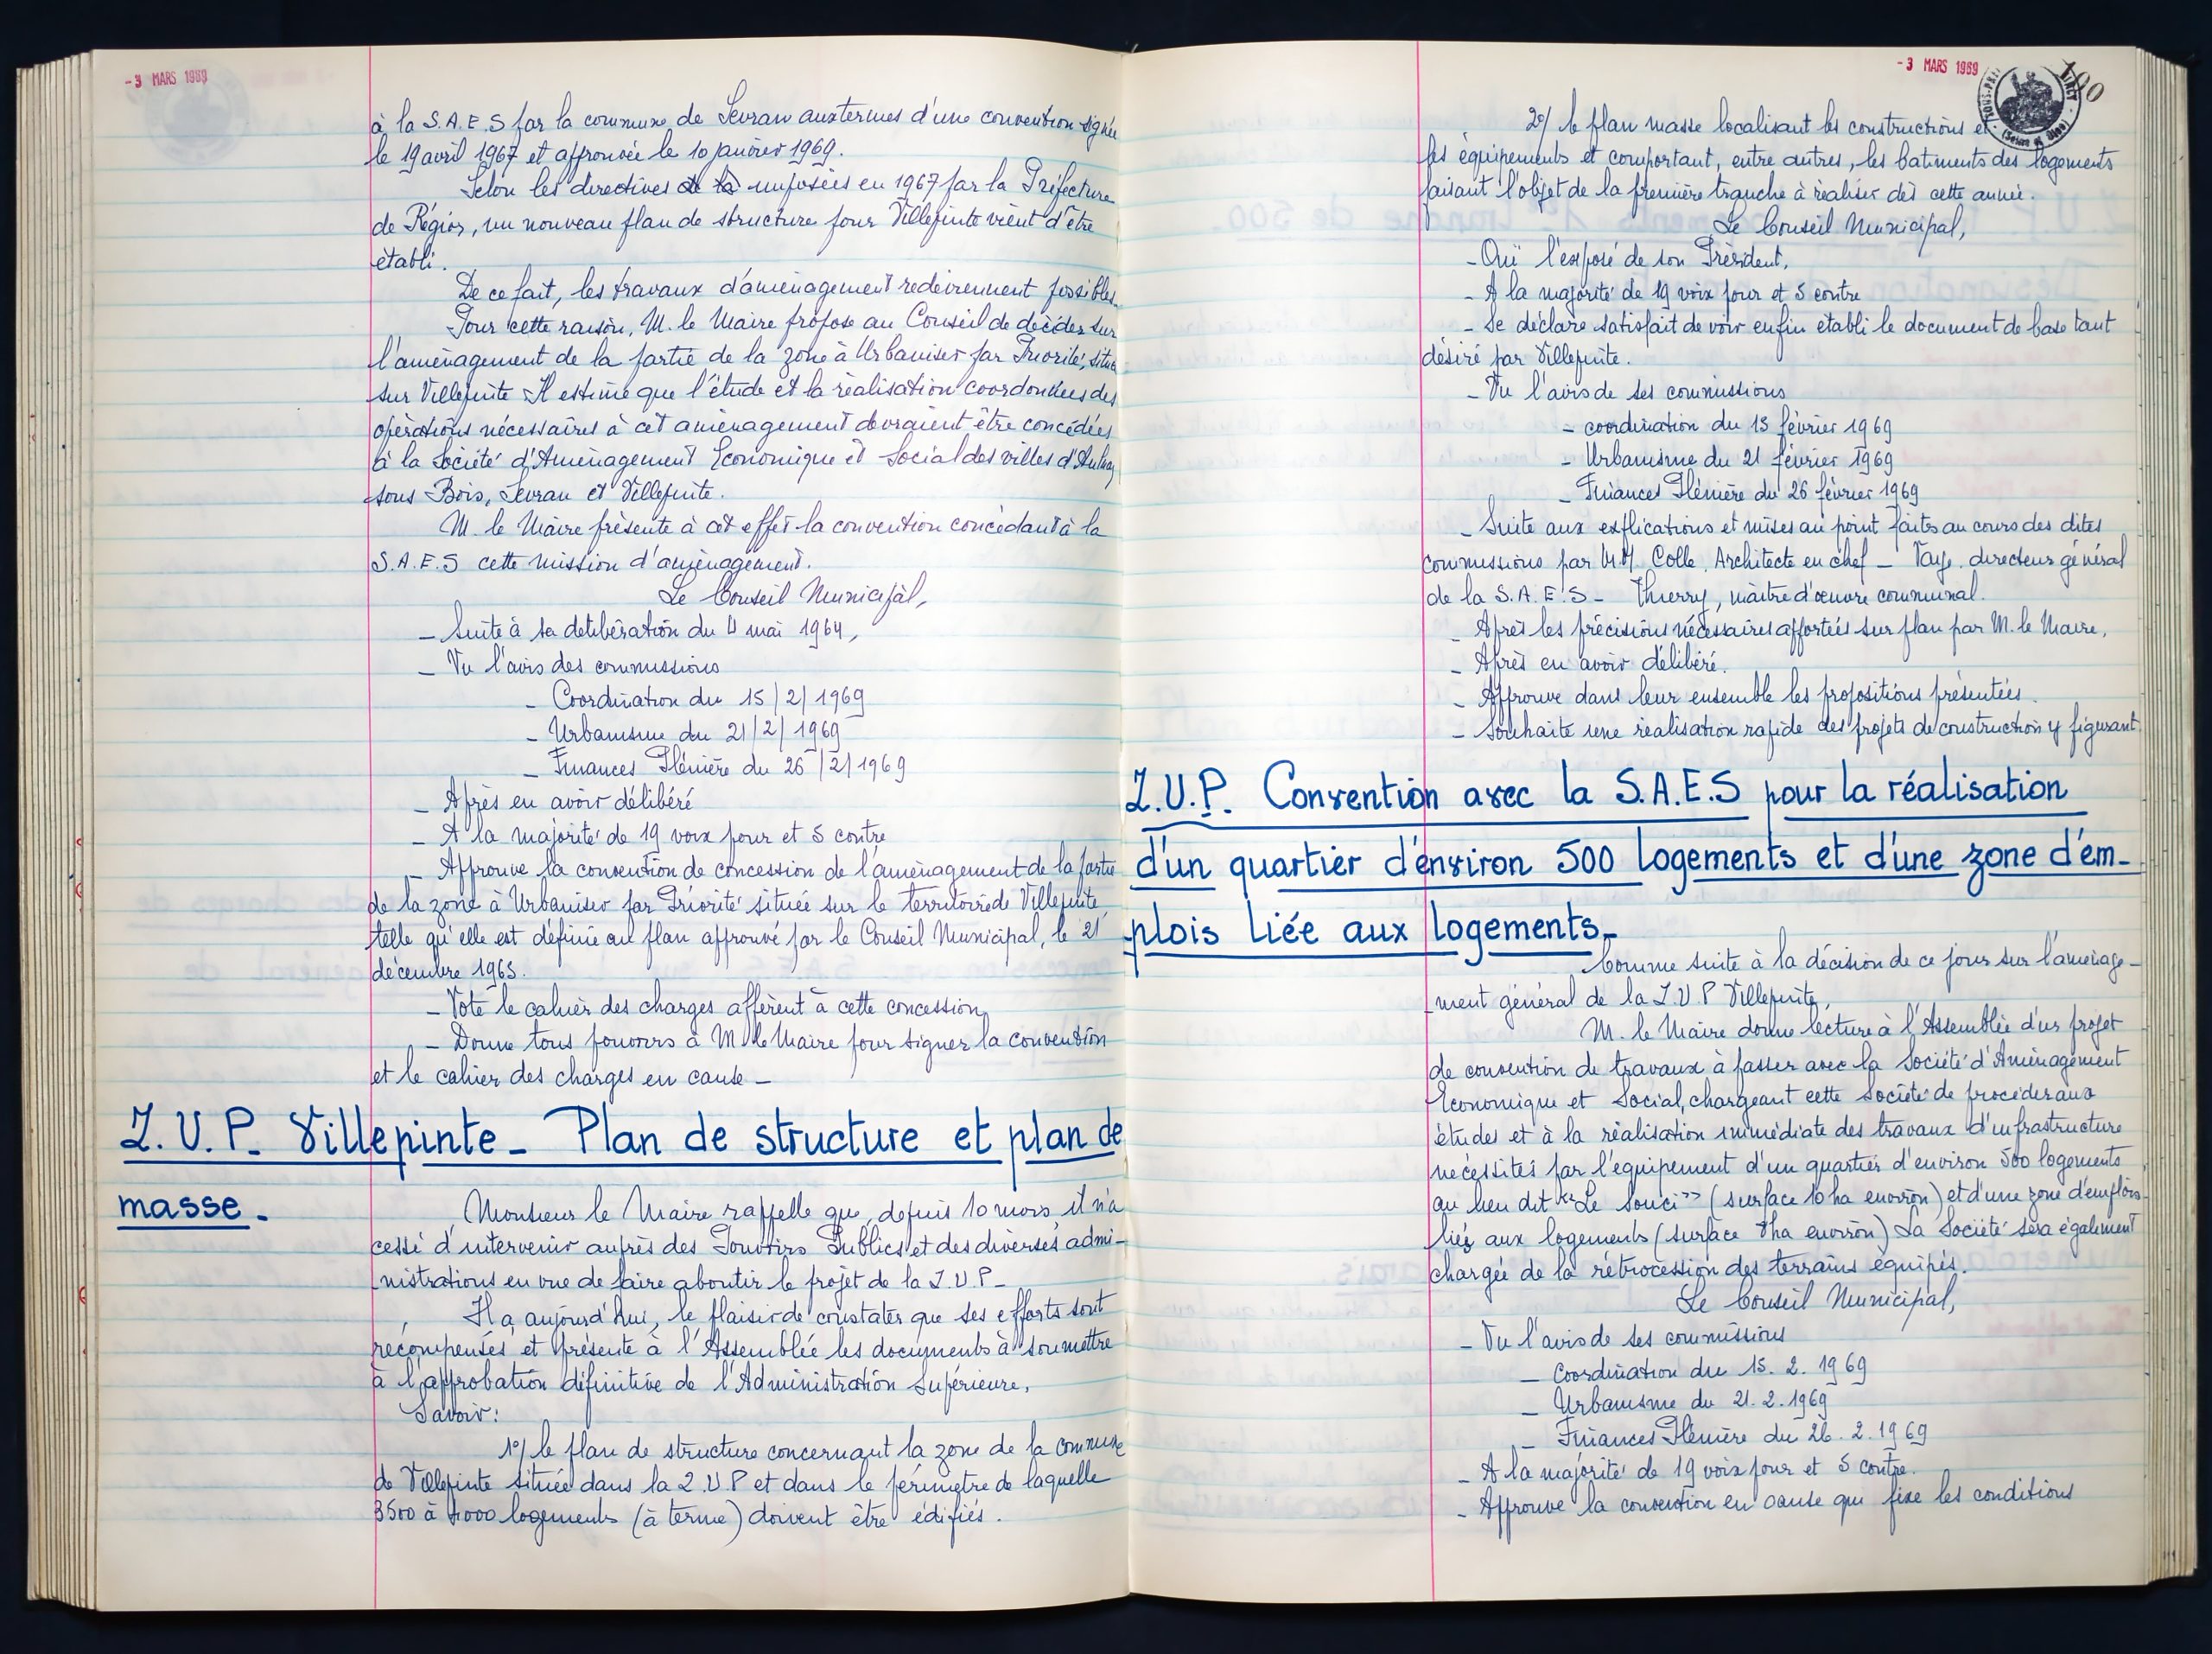 - 3 MARS 1969
à la S.A.E.S par la commune de Sevran aux termes d'une convention signée
le 19 avril 1967 et approuvée le 10 janvier 1969.
Selon les directives de la imposées en 1967 par la Préfecture
de Région, un nouveau plan de structure pour Villepinte vient d'être
établi.
De ce fait, les travaux d'aménagement redeviennent possibles.
Pour cette raison, M. le Maire propose au Conseil de décider sur
l'aménagement de la partie de la zone à Urbaniser par Priorité, située
sur Villepinte Il estime que l'étude et la réalisation coordonnées des
opérations nécessaires à cet aménagement devraient être concédées
à la Société d'Aménagement Economique et Social des villes d'Aulnay
sous Bois, Sevran et Villepinte.
M. le Maire présente à cet effet la convention concédant à la
S.A.E.S cette mission d'aménagement.
Le Conseil Municipal,
- Suite à sa delibération du 4 mai 1964,
- Vu l'avis des commissions
- Coordination du 15/2/1969
- Urbanisme du 21/2/1969
- Finances Plénière du 26/2/1969
- Après en avoir délibéré
- A la majorité de 19 voix pour et 5 contre
- Approuve la convention de concession de l'aménagement de la partie
de la zone à Urbaniser par Priorité située sur le territoire de Villepinte
telle qu'elle est définie au plan approuvé par le Conseil Municipal, le 21
décembre 1965.
- Vote le cahier des charges afférent à cette concession
- Donne tous pouvoirs à M. le Maire pour signer la convention
et le cahier des charges en cause -
Z.U.P. Villepinte - Plan de structure et plan de
masse -
Monsieur le Maire rappelle que, depuis 10 mois il n'a
cessé d'intervenir auprès des Pouvoirs Publics et des diverses admi-
nistrations en vue de faire aboutir le projet de la Z.U.P -
Il a, aujourd'hui, le plaisir de constater que ses efforts sont
récompensés et présente à l'Assemblée les documents à soumettre
à l'approbation définitive de l'Administration Supérieure,
Savoir :
1°/ le plan de structure concernant la zone de la commune
de Villepinte située dans la Z.U.P et dans le périmètre de laquelle
3500 à 4000 logements (à terme) doivent être édifiés.
- 3 MARS 1969
100
2°/ le plan masse localisant les constructions et
les équipements et comportant, entre autres, les batiments des logements
faisant l'objet de la première tranche à réaliser dès cette année.
Le Conseil Municipal,
- Ouï l'exposé de son Président,
- A la majorité de 19 voix pour et 5 contre
- Se déclare satisfait de voir enfin établi le document de base tant
désiré par Villepinte.
- Vu l'avis de ses commissions
- coordination du 15 février 1969
- Urbanisme du 21 février 1969
- Finances Plénière du 26 février 1969
- Suite aux explications et mises au point faites au cours des dites
commissions par M.M. Colle, Architecte en chef - directeur général
de la S.A.E.S - Thierry, maître d'œuvre communal.
- Après les précisions nécessaires apportées sur plan par M. le Maire,
- Après en avoir délibéré.
- Approuve dans leur ensemble les propositions présentées.
- Souhaite une réalisation rapide des projets de construction y figurant.
Z.U.P. Convention avec la S.A.E.S pour la réalisation
d'un quartier d'environ 500 logements et d'une zone d'em-
plois liée aux logements -
Comme suite à la décision de ce jour sur l'aménage-
ment général de la Z.U.P Villepinte,
M. le Maire donne lecture à l'Assemblée d'un projet
de convention de travaux à passer avec la Société d'Aménagement
Economique et Social, chargeant cette Société de procéder aux
études et à la réalisation immédiate des travaux d'infrastructure
nécessités par l'équipement d'un quartier d'environ 500 logements
au lieu dit "Le Souci" (surface 10 ha environ) et d'une zone d'emplois
liés aux logements (surface ha environ) La Société sera également
chargée de la rétrocession des terrains équipés.
Le Conseil Municipal,
- Vu l'avis de ses commissions
- Coordination du 15. 2. 1969
- Urbanisme du 21. 2. 1969
- Finances Plénière du 26. 2. 1969
- A la majorité de 19 voix pour et 5 contre.
- Approuve la convention en cause qui fixe les conditions